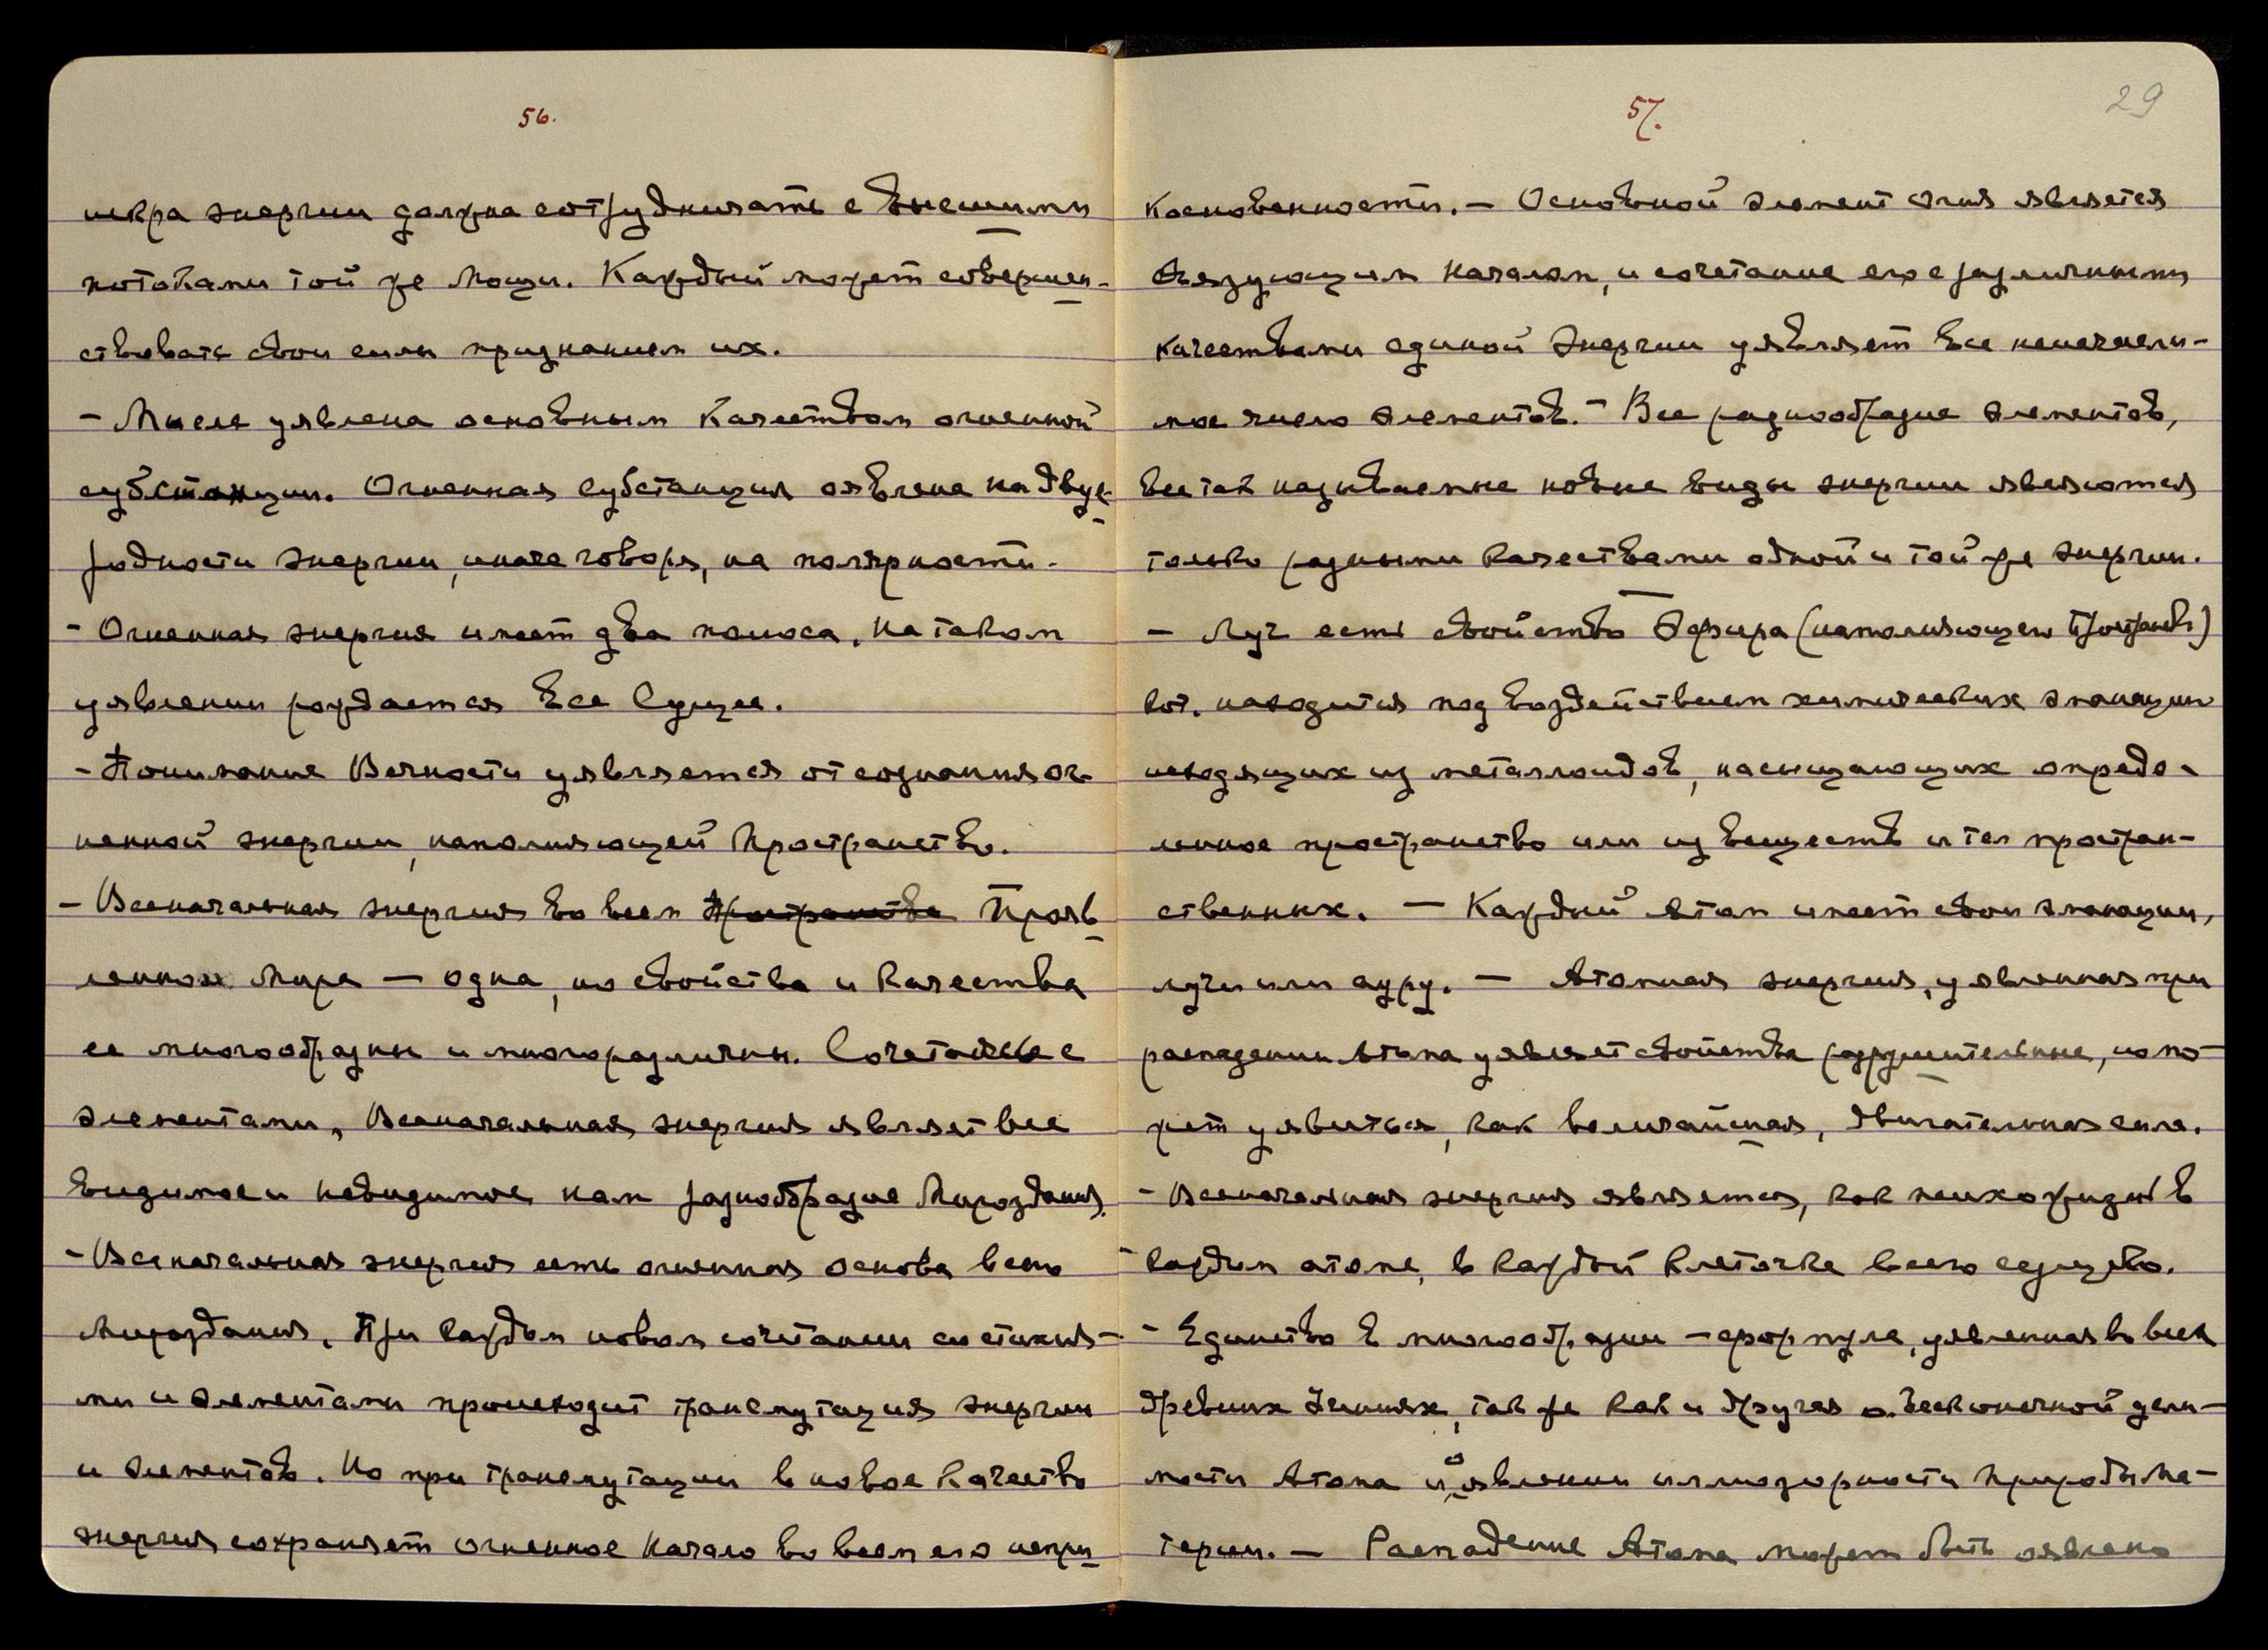 56.
искра энергии должна сотрудничать с внешними
потоками той же Мощи. Каждый может совершен-
ствовать свои силы признанием их.
- Мысль уявлена основным Качеством огненной
субстанции. Огненная субстанция оявлена на двуе-
родности энергии, иначе говоря, на полярности.
- Огненная энергия имеет два полюса. На таком
уявлении рождается Все Сущее.
- Понимание Вечности уявляется от сознания ог-
ненной энергии, наполняющей Пространство.
- Всеначальная энергия во всем Пространстве Прояв
ленном Мире — одна, но свойства и Качества
ее многообразны и многоразличны. Сочетаясь с
элементами, Всеначальная энергия являет все
видимое и невидимое нам разнообразие Мироздания.
- Всеначальная энергия есть огненная основа всего
Мироздания. При каждом новом сочетании со стихия-
ми и элементами происходит трансмутация энергии
и элементов. Но при трансмутации в новое Качество
энергия сохраняет огненное Начало во всем его непри
57.
29
косновенности. — Основной элемент огня является
связующим Началом, и сочетание его с различными
качествами единой Энергии уявляет все неисчисли-
мое число элементов. - Все разнообразие элементов,
все так называемые новые виды энергии являются
только разными качествами одной и той же энергии.
— Луч есть свойство Эфира (наполняющего Пространств)
кот. находится под воздействием химических эманаций
исходящих из металлоидов, насыщающих опреде-
ленное пространство или из веществ и тел простран-
ственных. — Каждый Атом имеет свои эманации,
лучи или ауру. — Атомная энергия, уявленная при
распадении Атома уявляет свойства разрушительные, но мо-
жет уявиться, как величайшая, двигательная сила.
- Всеначальная энергия является, как психофизич в
каждом атоме, в каждой клеточке всего сущего.
- Единство в многообразии — формула, уявленная во всех
древних Учениях, так же как и другая о бесконечной дели-
мости Атома и о явлении иллюзорности Природы Ма-
терии. — Распадение Атома может быть оявлено